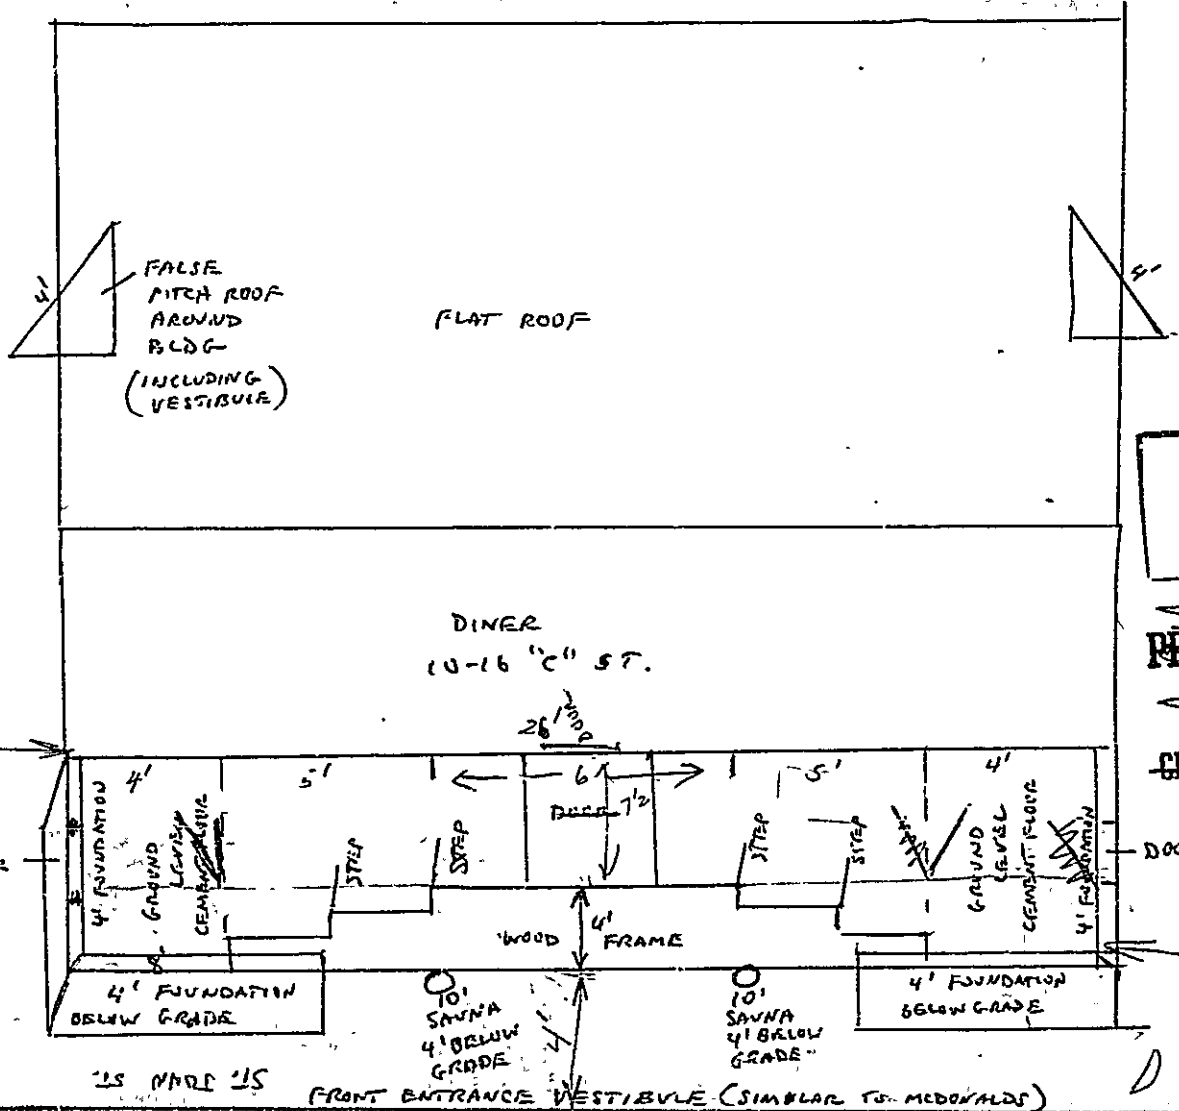 4'
FALSE
PITCH ROOF
AROUND
BLDG
(INCLUDING
VESTIBULE)
FLAT ROOF
4'
DINER
10-16 "C" ST.
26'
4'
5'
6'
5'
4'
DEEP 7 1/2
4' FOUNDATION
GROUND
LEVEL
CEMENT FLOUR
STEP
STEP
STEP
STEP
GROUND
LEVEL
CEMENT FLOUR
4' FOUNDATION
DOO
8'
WOOD 4' FRAME
4' FOUNDATION
BELOW GRADE
10'
SAUNA
4' BELOW
GRADE
4'
10'
SAUNA
4' BELOW
GRADE
4' FOUNDATION
BELOW GRADE
FRONT ENTRANCE VESTIBULE (SIMILAR TO MCDONALDS)